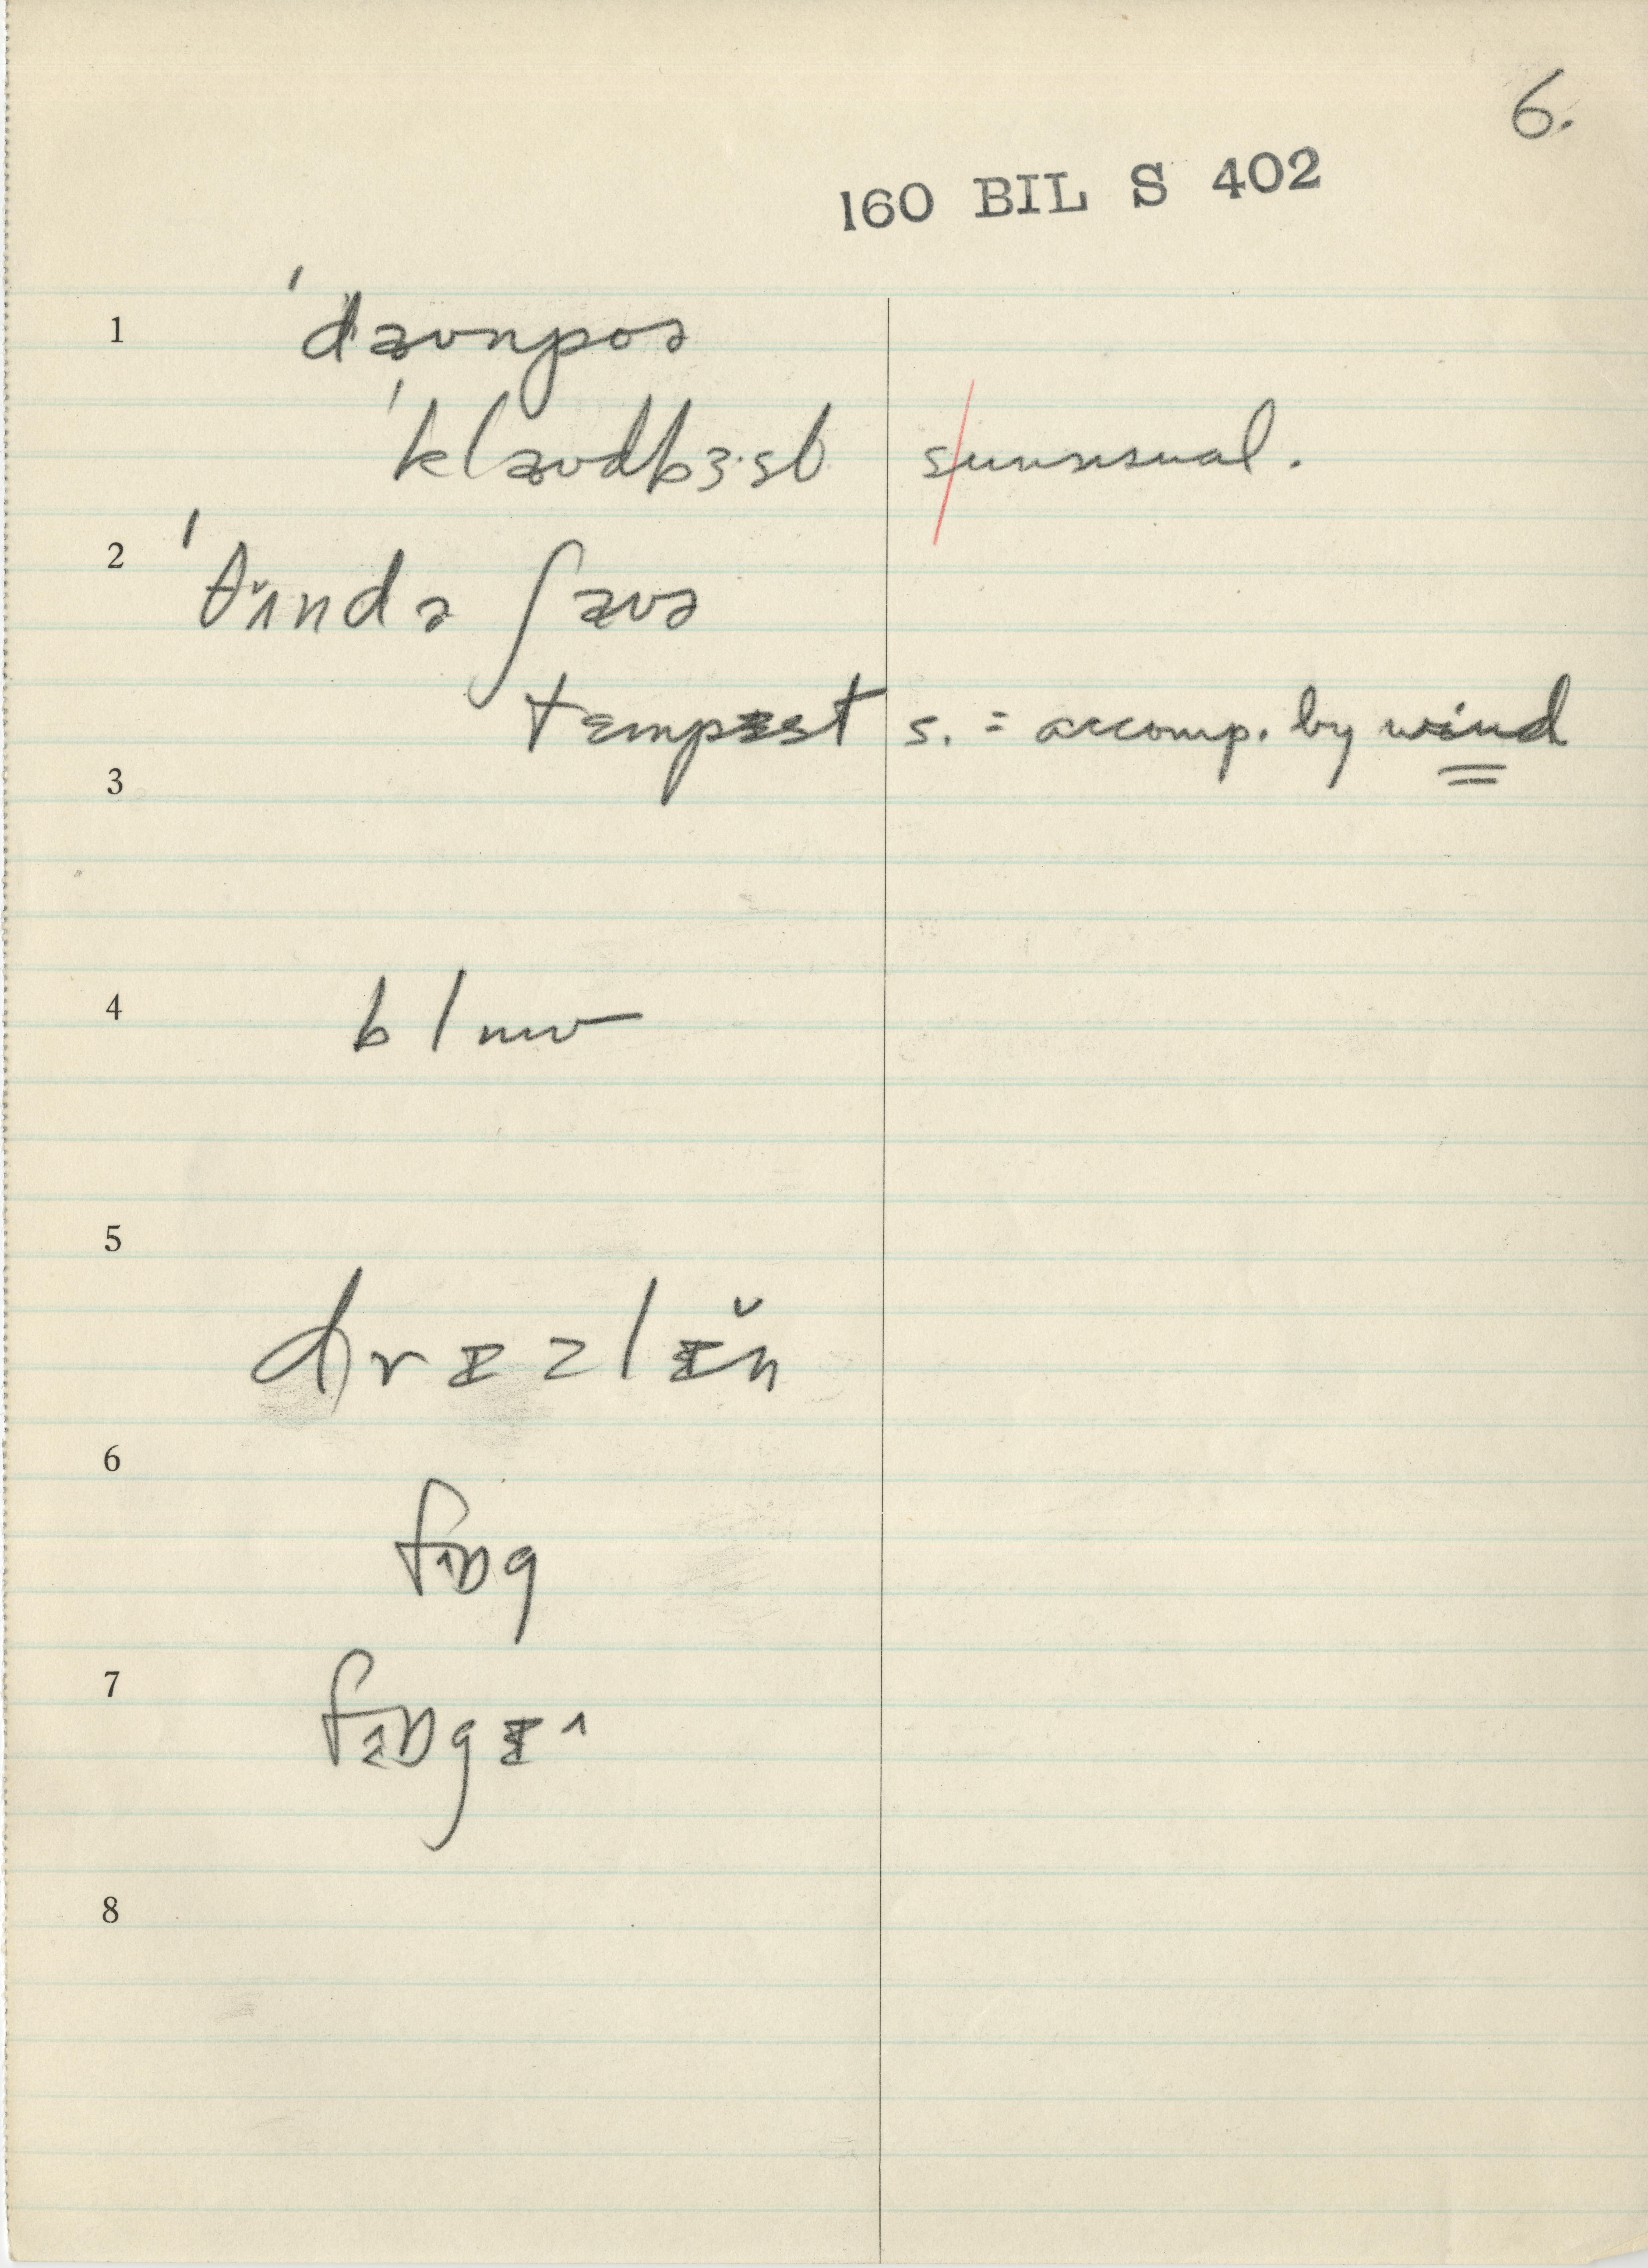 6.
160 BIL S 402
1 ˈdæʊnpoə
ˈklæʊdbɜ·st s/unusual.
2 ˈθʌndə ʃæʊə
tempɪst s. = accomp. by wind
3
4 blow
5 drɪzlɪn
6 fɒg
7 fɒgɪ
8